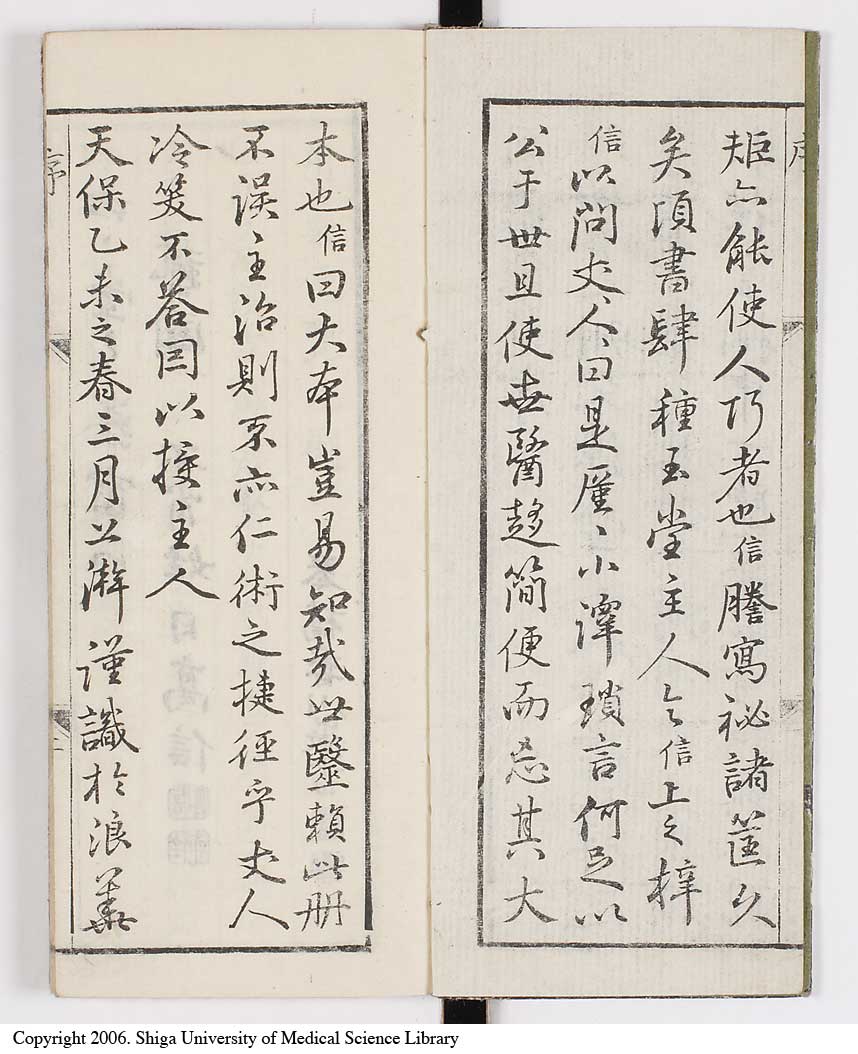 矩亦能使人巧者也信謄寫祕諸筐久
矣頃書肆種玉堂主人令信上之梓
信以問丈人人曰是厪厪小譚瑣言何足以
公于世且使世醫趍簡便而忘其大
本也信曰大本豈易知哉世醫頼此册
不誤主治則不亦仁術之捷徑乎丈人
冷笑不答因以授主人
天保乙未之春三月上澣謹識於浪華
序
Copyright 2006. Shiga University of Medical Science Library